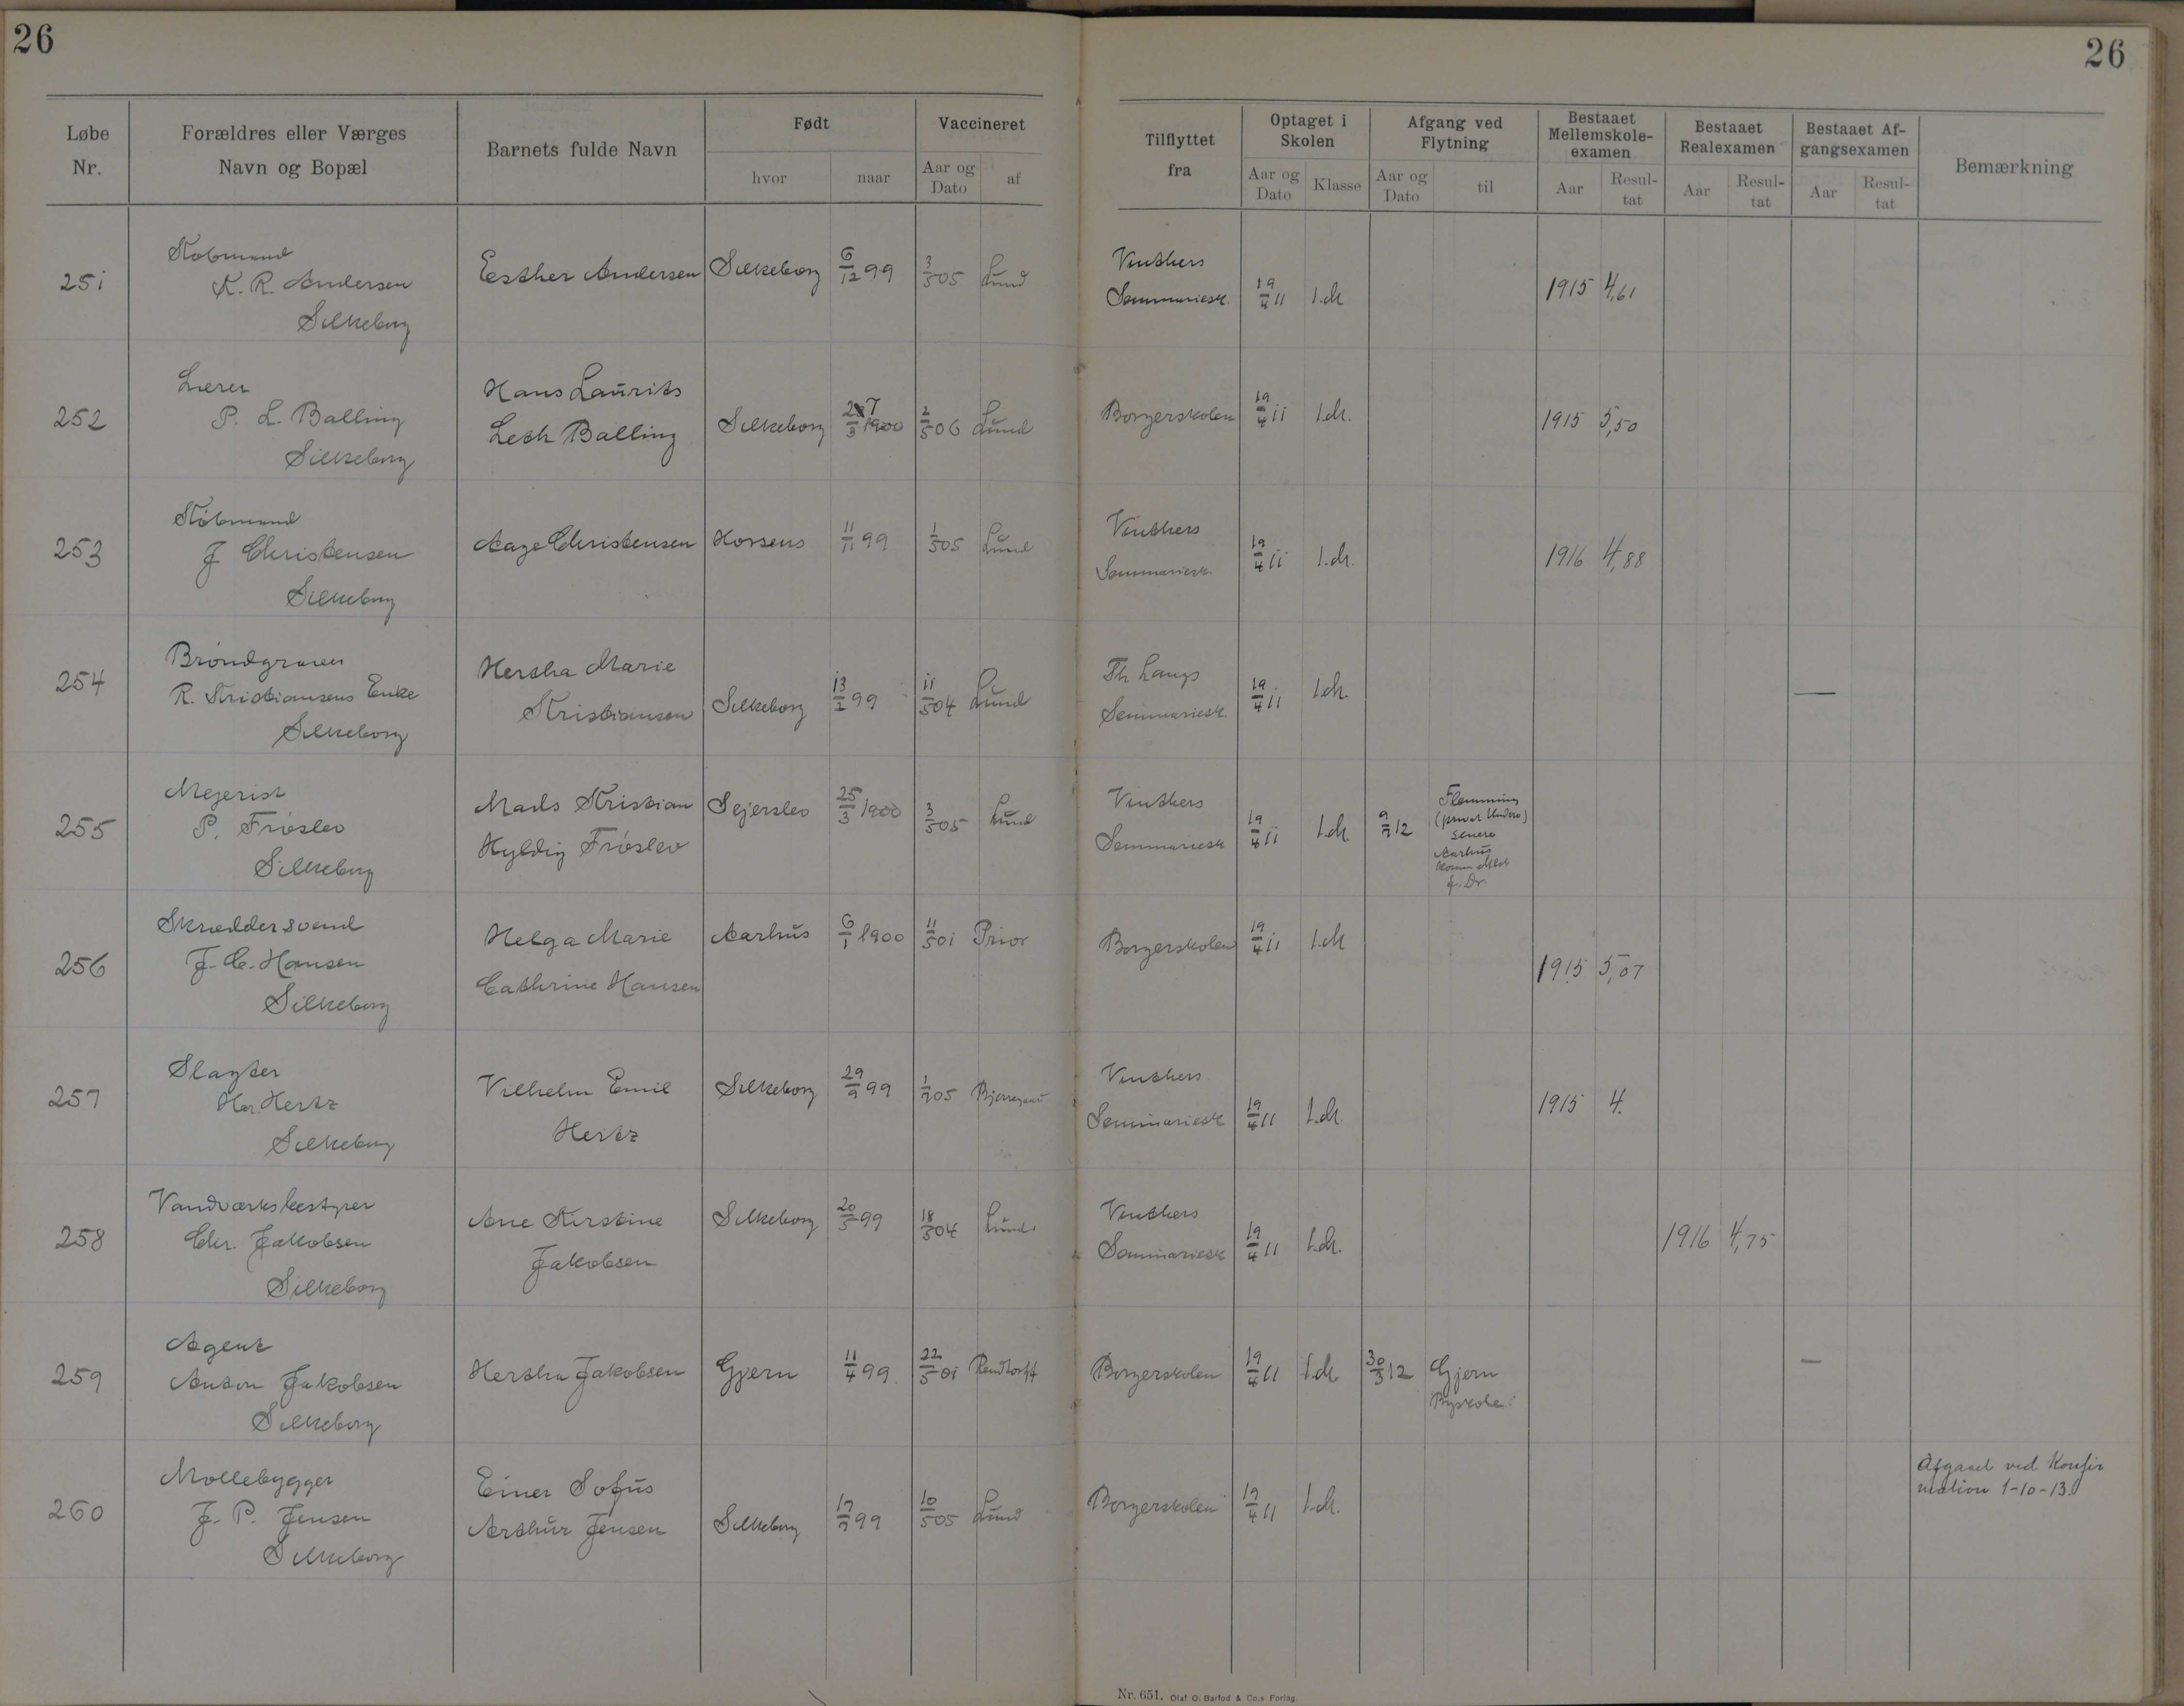 26
26
Løbe Nr.
Forældres eller Værges Navn og Bopæl
Barnets fulde Navn
Født
hvor
naar
Vaccineret
Aar og Dato
af
Tilflyttet fra
Optaget i Skolen
Aar og Dato
Klasse
Afgang ved Flytning
Aar og Dato
til
Bestaaet Mellemskole-examen
Aar
Resul-tat
Bestaaet Realexamen
Aar
Resul-tat
Bestaaet Af-gangsexamen
Aar
Resul-tat
Bemærkning
251
Købmand
K. R. Andersen
Silkeborg
Esther Andersen
Silkeborg
6/12 99
3/5 05
Lund
Vinthers
Seminariesk.
19/4 11
1.M
1915 4,61
252
Lærer
P. L. Balling
Silkeborg
Hans Laurits
Leth Balling
Silkeborg
2/5 06
Lund
Borgerskolen
19/4 11
1.M.
1915 5,50
253
Købmand
J Christensen
Silkeborg
Aage Christensen
Horsens
11/11 99
1/5 05
Lund
Vinthers
Seminariesk.
19/4 11
1.M.
1916 4,88
254
Brøndgraver
R. Kristiansens Enke
Silkeborg
Hertha Marie
Kristiansen
Silkeborg
13/2 99
11/5 04
Lund
Th Langs
Seminariesk.
19/4 11
1.M.
—
255
Mejerist
P. Frøslev
Silkeborg
Mads Kristian
Hyldig Frøslev
Sejerslev
25/3 1900
3/5 05
Lund
Vinthers
Seminariesk
19/4 11
1.M.
9/7 12
Flemming
(privat Underv)
senere
Aarhus
256
Skræddersvend
J. C. Hansen
Silkeborg
Helga Marie
Cathrine Hansen
Aarhus
6/1 1900
11/5 01
Prior
Borgerskolen
19/4 11
1.M
1915 5,07
257
Slagter
Hertz
Silkeborg
Vilhelm Emil
Hertz
Silkeborg
29/9 99
1/7 05
Vinthers
Seminariesk
19/4 11
1.M.
1915 4.
258
Vandværksbestyrer
Chr. Jakobsen
Silkeborg
Ane Kirstine
Jakobsen
Silkeborg
20/5 99
18/5 04
Lund
Vinthers
Seminariesk
19/4 11
1.M.
1916 4,75
259
Agent
Anton Jakobsen
Silkeborg
Hertha Jakobsen
Gjern
11/4 99
22/5 01
Rendtorff
Borgerskolen
19/4 11
1.M.
30/3 12
Gjern
Byskole
—
260
Møllebygger
J. P. Jensen
Silkeborg
Einer Sofus
Arthur Jensen
Silkeborg
17/7 99
10/5 05
Lund
Borgerskolen
19/4 11
1.M.
Afgaaet ved Konfir
mation 1-10-13.
Nr. 651. Olaf O. Barfod & Co.s Forlag.